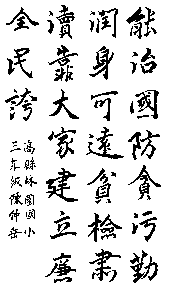 能治國防貪污勤
潤身可遠貧檢肅
瀆靠大家建立廉
全民誇
高縣林園國小
三年級陳仲岳